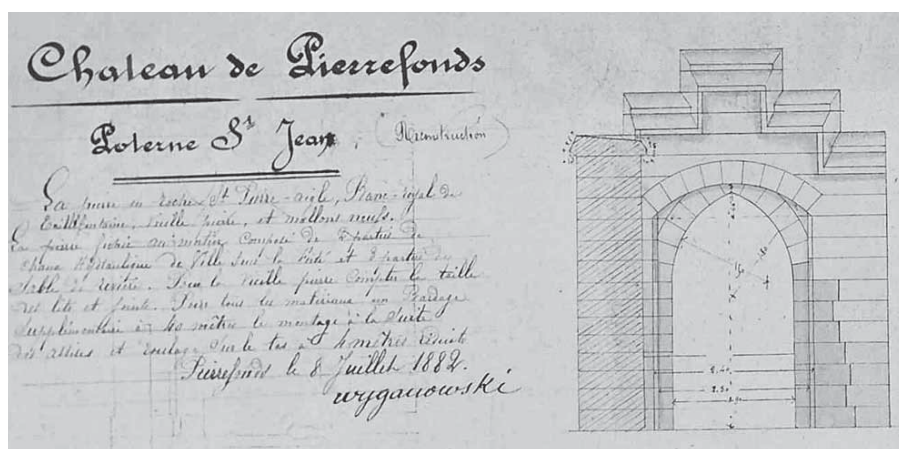 Chateau de Pierrefonds
Poterne St Jean, (Reconstruction)
La pierre en roche St Pierre-aigle, Banc-royal de
Taillefontaine, vieille pierre, et moellons neufs.
La pierre fichée au mortier composé de 2 parties de
chaux Hydraulique de Ville sous la Ferté et 3 parties de
sable de rivière. Pour la vieille pierre compter la taille
des lits et joints. Pour tous les materiaux un Bardage
Supplémentaire à 40 mètres le montage à la suite
des assises et coulage sur le tas à 4 mètres réduits
Pierrefonds le 8 Juillet 1882.
wyganowski